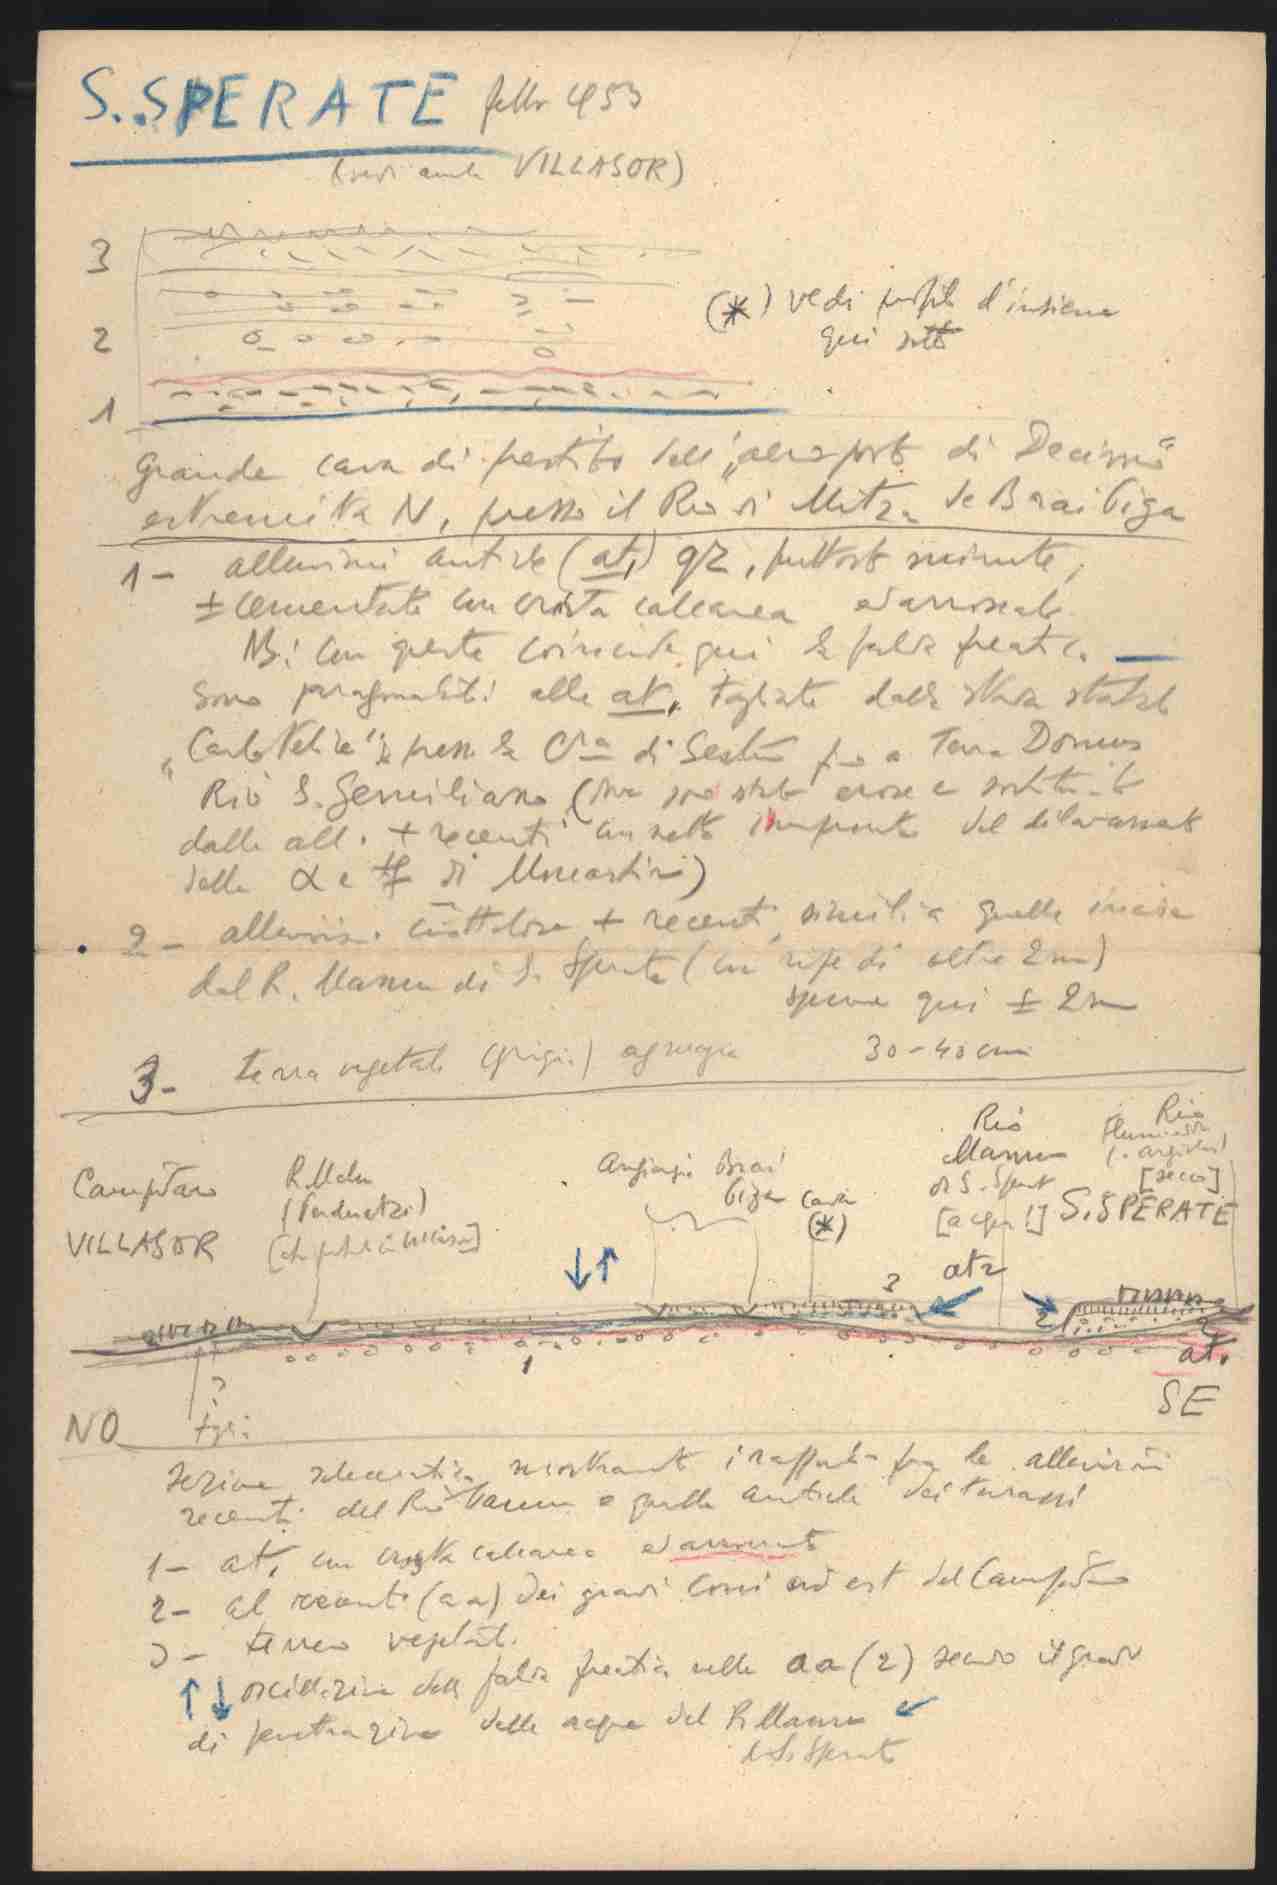 S. SPERATE febbr 953
(vedi anche VILLASOR)
3
2
1
(*) vedi profilo d'insieme
qui sotto
Grande cava di prestito dell' "aeroporto di Decimo"
estremità N, presso il Rio di Mitza de Brai Giga
1 - alluvioni antiche (at1) qz, piuttosto minute,
± cementate con crosta calcarea ed arrossate.
NB: con queste coincide qui la falda freatica
Sono paragonabili alle at1, tagliate dalla strada statale
"Carlo Felice" presso la C.ra di Sestu fino a Terra Domus
Rio S. Gemiliano (ove sono state erose e sostituite
dalle all. + recenti con netta impronta del dilavamento
delle α e di Monastir)
2 - alluvioni ciottolose + recenti, simili a quelle incise
dal R. Mannu di S. Sperate (con ripe di oltre 2 m)
spessore qui ± 2 m
3 - terra vegetale (grigia) 30-40 cm
Campidano
VILLASOR
R. Malu
Brai
Giga
cava
(*)
Rio
Mannu
di S. Sperate
[acqua!]
Rio
[secco]
S. SPERATE
at2
3
2
2
1
at1
?
NO
SE
Sezione schematica mostrante i rapporti fra le alluvioni
recenti del Rio Mannu e quelle antiche dei terrazzi
1 - at1 con crosta calcarea ed arrossate
2 - al recenti (aa) dei grandi coni ad est del Campidano
3 - terreno vegetale.
↑↓ oscillazione della falda freatica nelle aa (2) secondo il grado
di penetrazione delle acque del R. Mannu
di S. Sperate